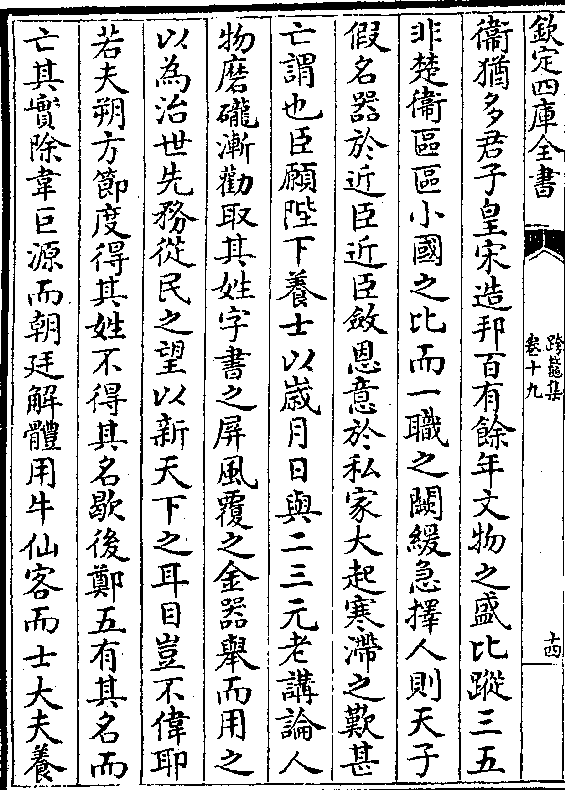 欽定四庫全書
跨鼇集
卷十九
十四
衞猶多君子皇宋造邦百有餘年文物之盛比蹤三五
非楚衞區區小國之比而一職之闕緩急擇人則天子
假名器於近臣近臣斂恩意於私家大起寒滯之歎甚
亡謂也臣願陛下養士以歲月日與二三元老講論人
物磨礲漸勸取其姓字書之屏風覆之金器舉而用之
以為治世先務從民之望以新天下之耳目豈不偉耶
若夫朔方節度得其姓不得其名歇後鄭五有其名而
亡其實除韋巨源而朝廷解體用牛仙客而士大夫養